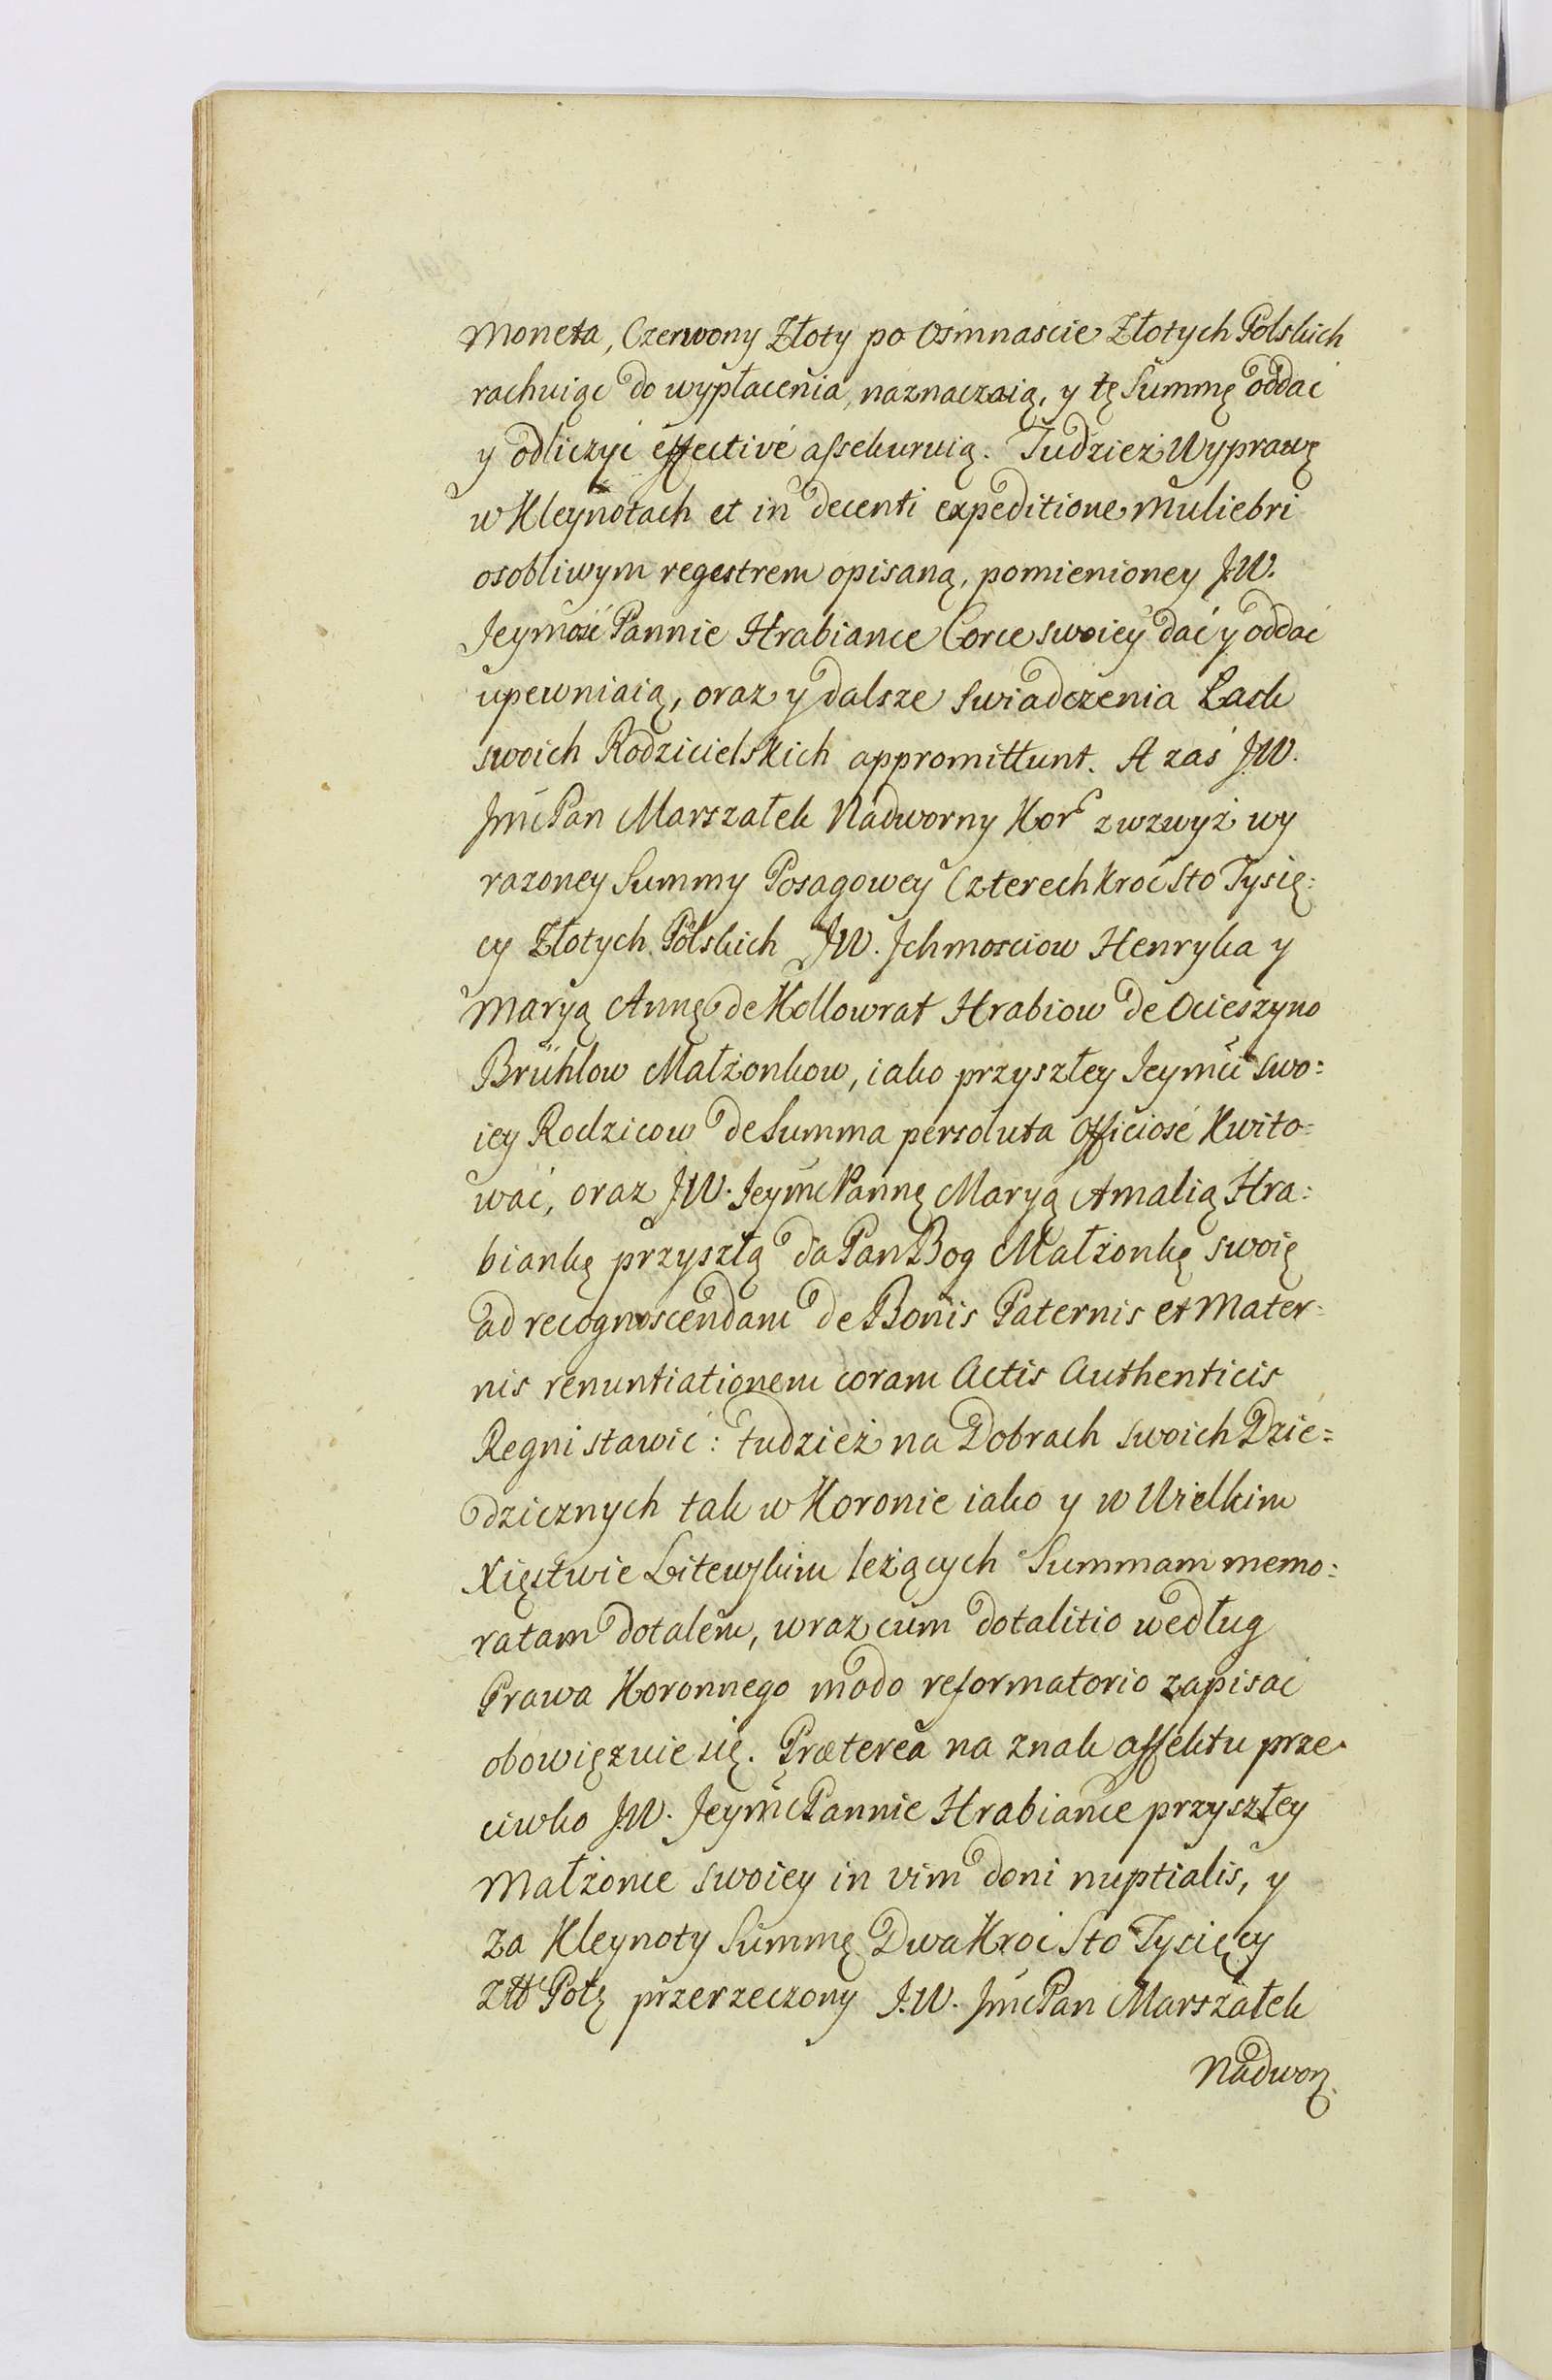 Moneta, Czerwony Złoty po Osmnaście Złotych Polskich
rachuiąc do wypłacenia, naznaczaią, y tę Summę oddać
y odliczyć effectivé assekuruią. Tudzież Wyprawę
w Kleynotach et in decenti expeditione Muliebri
osobliwym regestrem opisaną, pomienioney J.W.
Jeymość Pannie Hrabiance Corce swoiey dać y oddać
upewniaią, oraz y dalsze Swiadczenia Łask
swoich Rodzicielskich appromittunt. A zaś J.W.
Jmć Pan Marszałek Nadworny Kor. zwzwyż wy
razoney Summy Posagowey Czterech kroć Sto Tysię:
cy Złotych Polskich JW. Ichmosciow Henryka y
Maryą Annę de Kollowrat Hrabiow de Ocieszyno
Brühlow Małżonkow, iako przyszłey Jeymći swo:
iey Rodzicow de Summa persoluta Officiosé Kwito=
wać, oraz J.W. Jeymć Pannę Maryą Amalią Hra:
biankę przyszłą da Pan Bog Małżonkę swoię
ad recognoscendam de Bonis Paternis et Mater=
nis renuntiationem coram Actis Authenticis
Regni stawić: tudzież na Dobrach swoich Dzie=
dzicznych tak w Koronie iako y w Wielkim
Xięstwie Litewskim leżących Summam memo:
ratam dotalem, wraz cum dotalitio według
Prawa Koronnego modo reformatorio zapisać
obowięzuie się. Præterea na znak affektu prze
ciwko J.W. Jeymć Pannie Hrabiance przyszłey
Małżonce swoiey in vim doni nuptialis, y
za Kleynoty Summę Dwa Kroć Sto Tysięcy
Złł Polz przerzeczony J.W. Jmć Pan Marszałek
Nadwor.